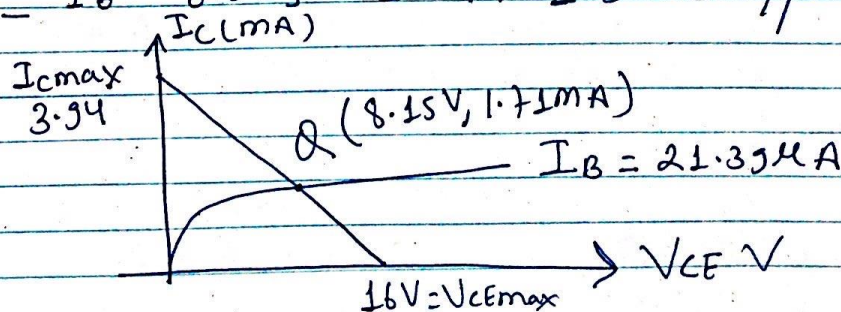 Ic(mA)
Icmax
3.94
Q (8.15V, 1.71mA)
IB = 21.39μA
VCE V
16V=VCEmax